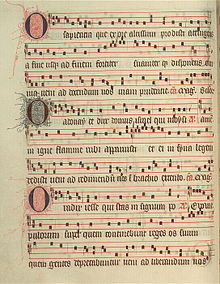 O sapiencia que ex ore altissimi prodisti attingens
a fine usq; ad finem fortiter suauiter q; disponens om
nia ueni ad docendum nos uiam prudencie
O adonay et dux domus israel qui moysi
in igne flamme rubi apparuisti et ei in syna legem
dedisti ueni ad redimendum nos i brachio extento
O radix iesse qui stas in signum
pulorum super quem continebunt reges os suum
quem gentes deprecabuntur ueni ad liberandum nos